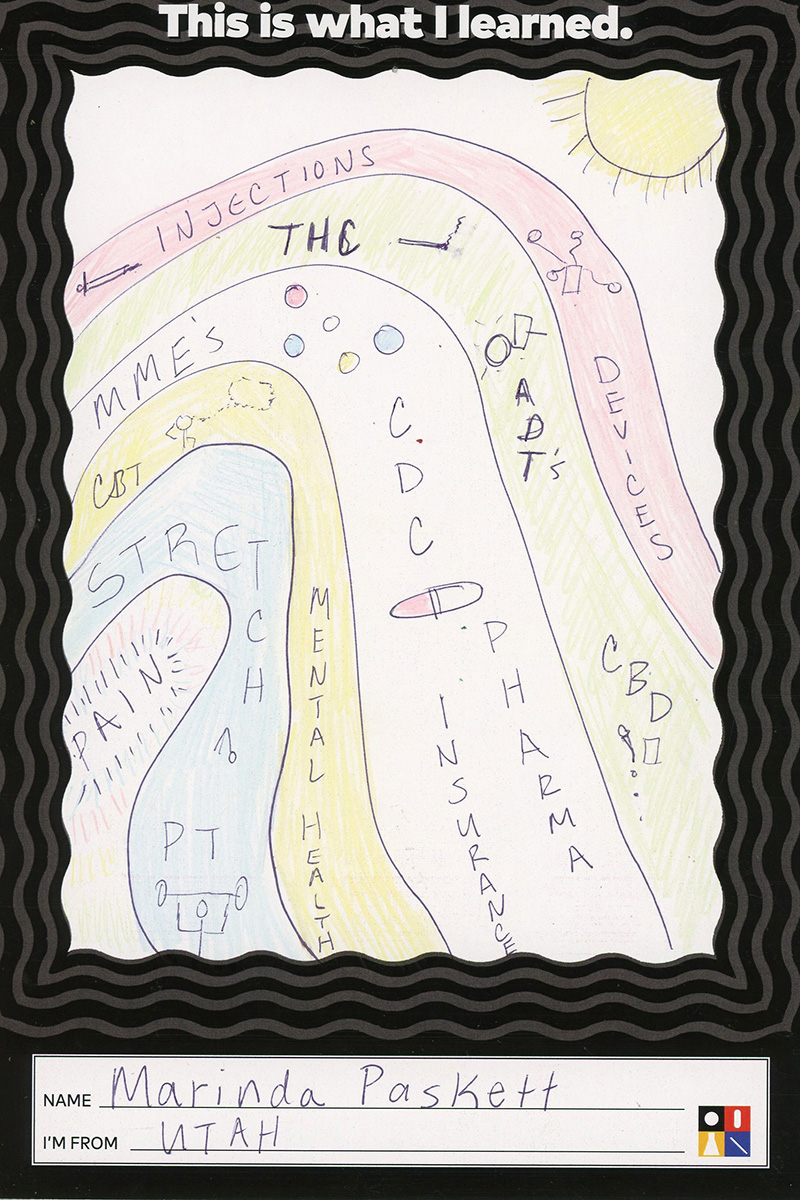 This is what I learned.
INJECTIONS
THC
MME's
CBT
STRETCH
PAIN
PT
MENTAL HEALTH
CDC
INSURANCE
PHARMA
ADT's
DEVICES
CBD
NAME Marinda Paskett
I'M FROM UTAH